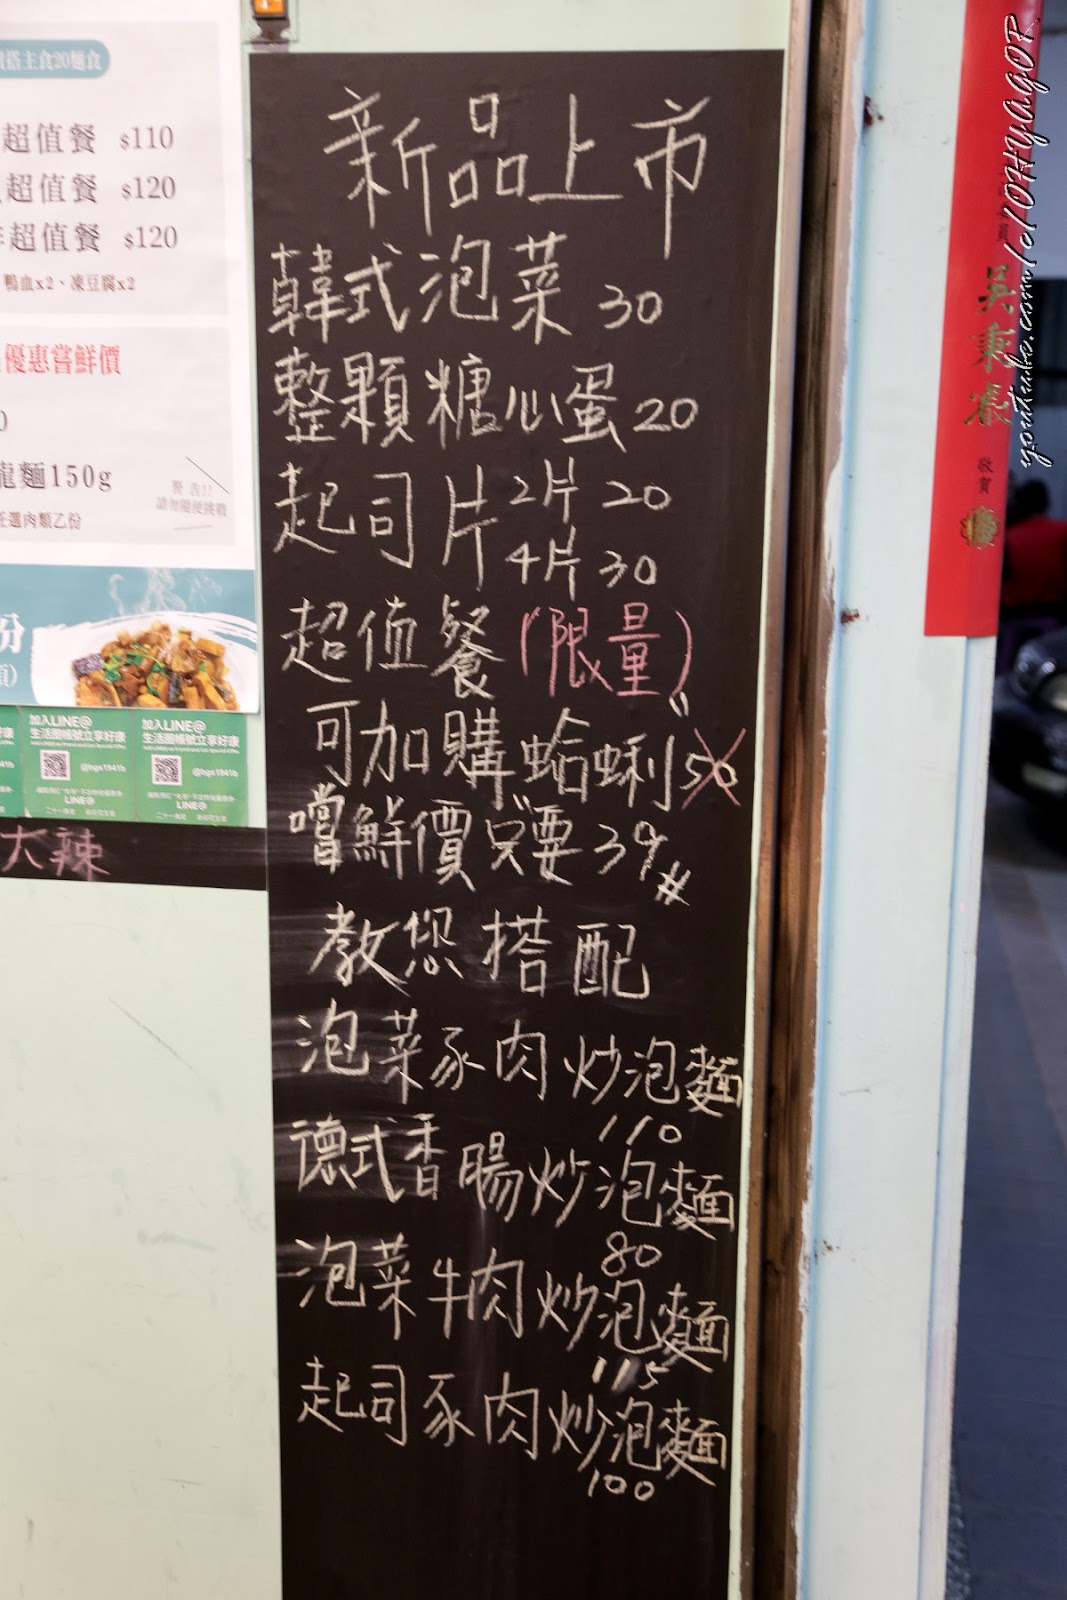 搭主食20麵食
超值餐 $110
超值餐 $120
超值餐 $120
鴨血x2、凍豆腐x2
優惠嘗鮮價
0
龍麵150g
任選肉類乙份
警告!!
請勿隨便挑戰
份
加入LINE@
生活圈帳號立享好康
@hgs1941b
LINE@
加入LINE@
生活圈帳號立享好康
@hgs1941b
LINE@
大辣
新品上市
韓式泡菜 30
整顆糖心蛋 20
起司片 2片 20
4片 30
超值餐(限量)
可加購蛤蜊 50
嚐鮮價"只要"39#
教您搭配
泡菜豕肉炒泡麵
110
德式香腸炒泡麵
80
泡菜牛肉炒泡麵
115
起司豕肉炒泡麵
100
員
吳秉睿
敬賀
youtube.com/c/OHyagOR